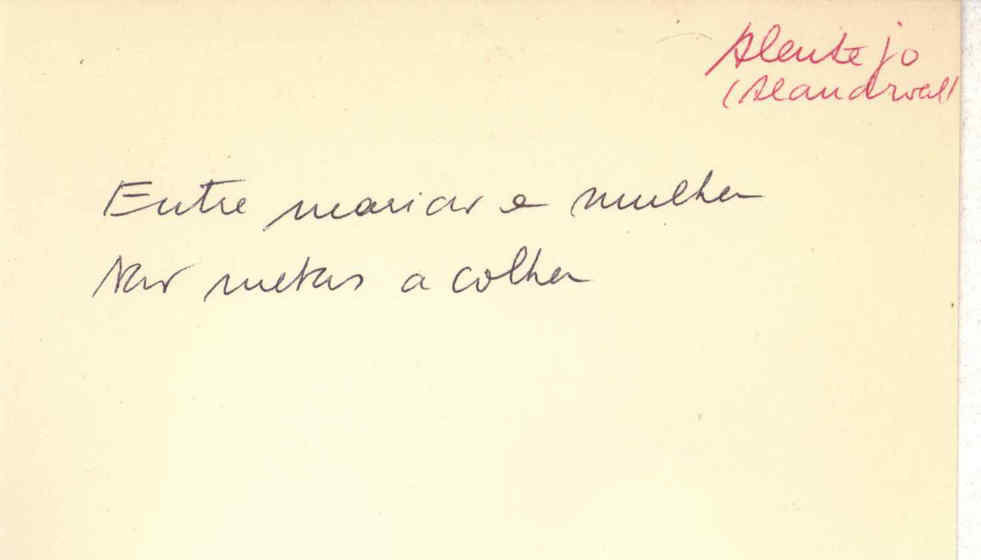 Alentejo
(Alandroal)
Entre marido e mulher
Não metas a colher